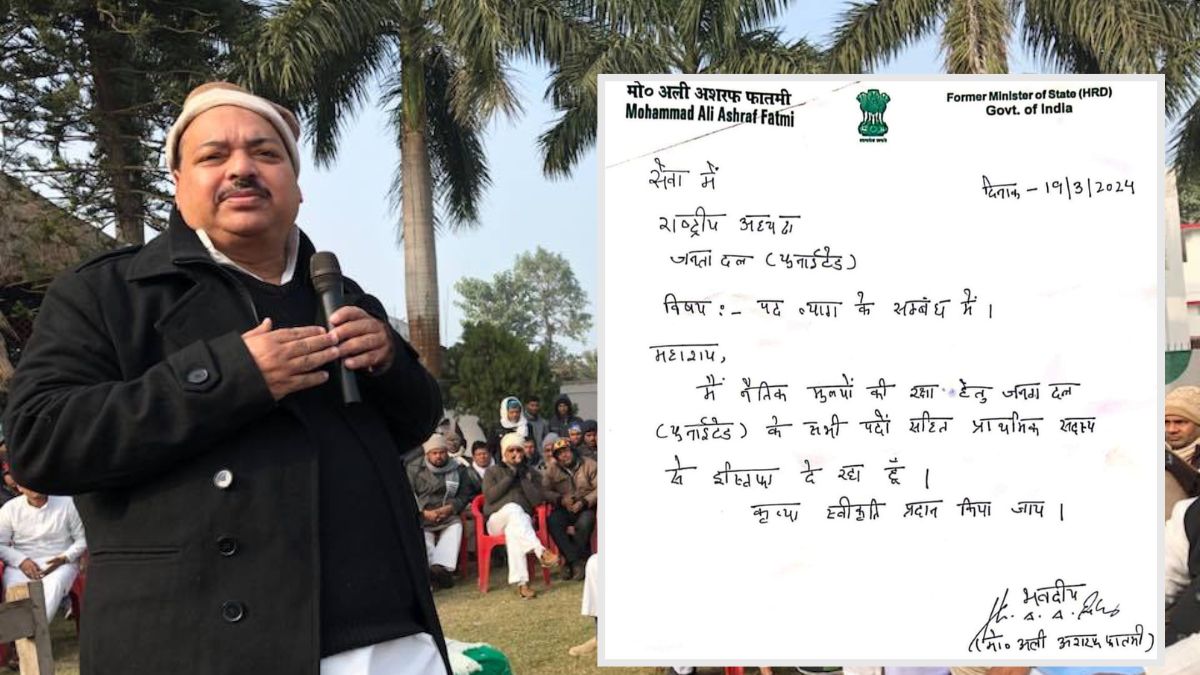 मो० अली अशरफ फातमी
Mohammad Ali Ashraf Fatmi
Former Minister of State (HRD)
Govt. of India
सेवा में
दिनांक - 19/3/2024
राष्ट्रीय अध्यक्ष
जनता दल (युनाईटेड)
विषय :- पद त्याग के सम्बंध में।
महाशय,
मैं नैतिक मुल्यों की रक्षा हेतु जनता दल
(युनाईटेड) के सभी पदों सहित प्राथमिक सदस्य
से इस्तिफा दे रहा हूँ।
कृप्या स्वीकृति प्रदान किया जाय।
भवदीय
(मो० अली अशरफ फातमी)